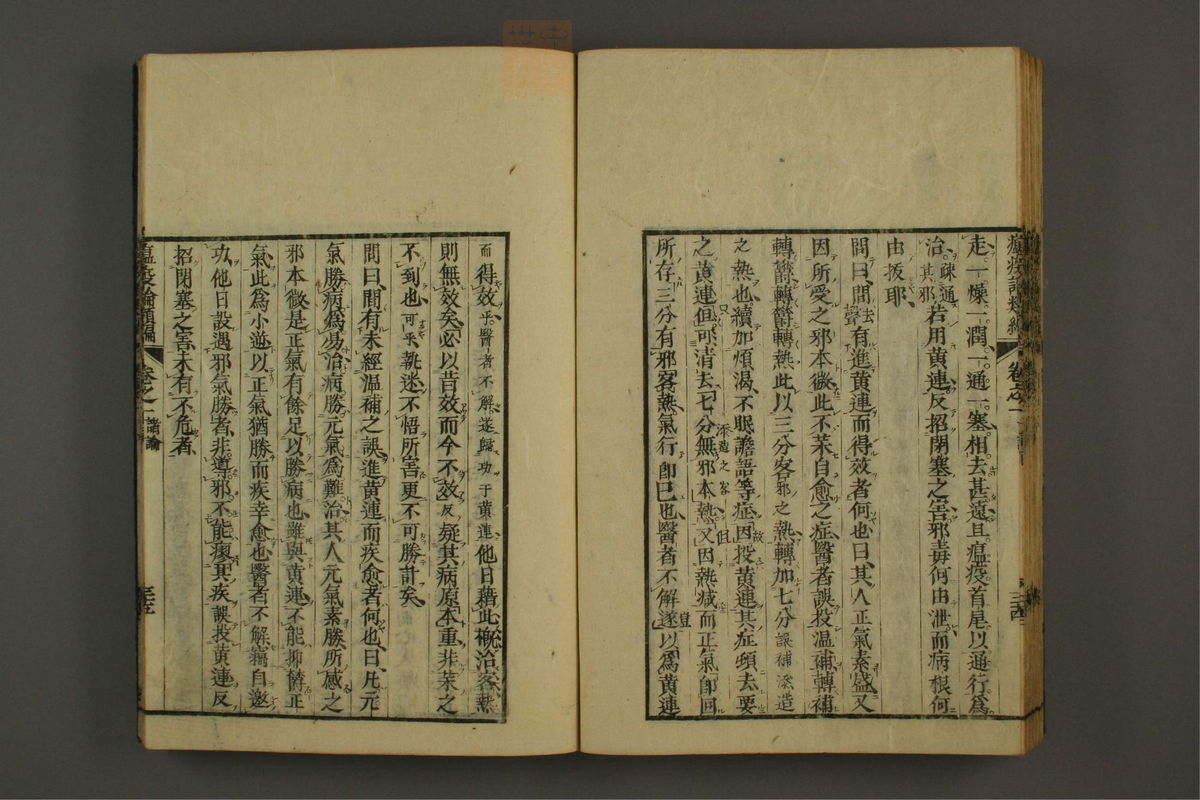 走一燥一潤一通一塞相去甚遠且瘟疫首尾以通行為
治疎通其邪若用黃連反招閉塞之害邪毒何由泄而病根何
由拔耶
問曰間法有進黃連而得效者何也曰其人正氣素盛又
因所受之邪本微此不藥自愈之症醫者誤投温補轉補
轉欝轉欝轉熱此以三分客邪之熱轉加七分誤補添造
之熱也續加煩渴不眠譫語等症因投黃連其症頓去要
之黃連但可清去七分無邪本熱又因熱减而正氣即回
所存三分有邪客熱氣行即已也醫者不解遂以為黃連
而得效乎醫者不解遂歸功于黃連他日藉此槪治客熱
則無效矣必以昔效而今不效反疑其病原本重非藥之
不到也可乎執迷不悟所害更不可勝計矣
問曰間有未經温補之誤進黃連而疾愈者何也曰凡元
氣勝病為易治病勝元氣為難治其人元氣素勝所感之
邪本微是正氣有餘足以勝病也雖與黃連不能抑欝正
氣此為小逆以正氣猶勝而疾幸愈也醫者不解竊自邀
功他日設遇邪氣勝者非導邪不能瘳其疾誤投黃連反
招閉塞之害未有不危者
瘟疫論類編 卷之一 諸論 三十五